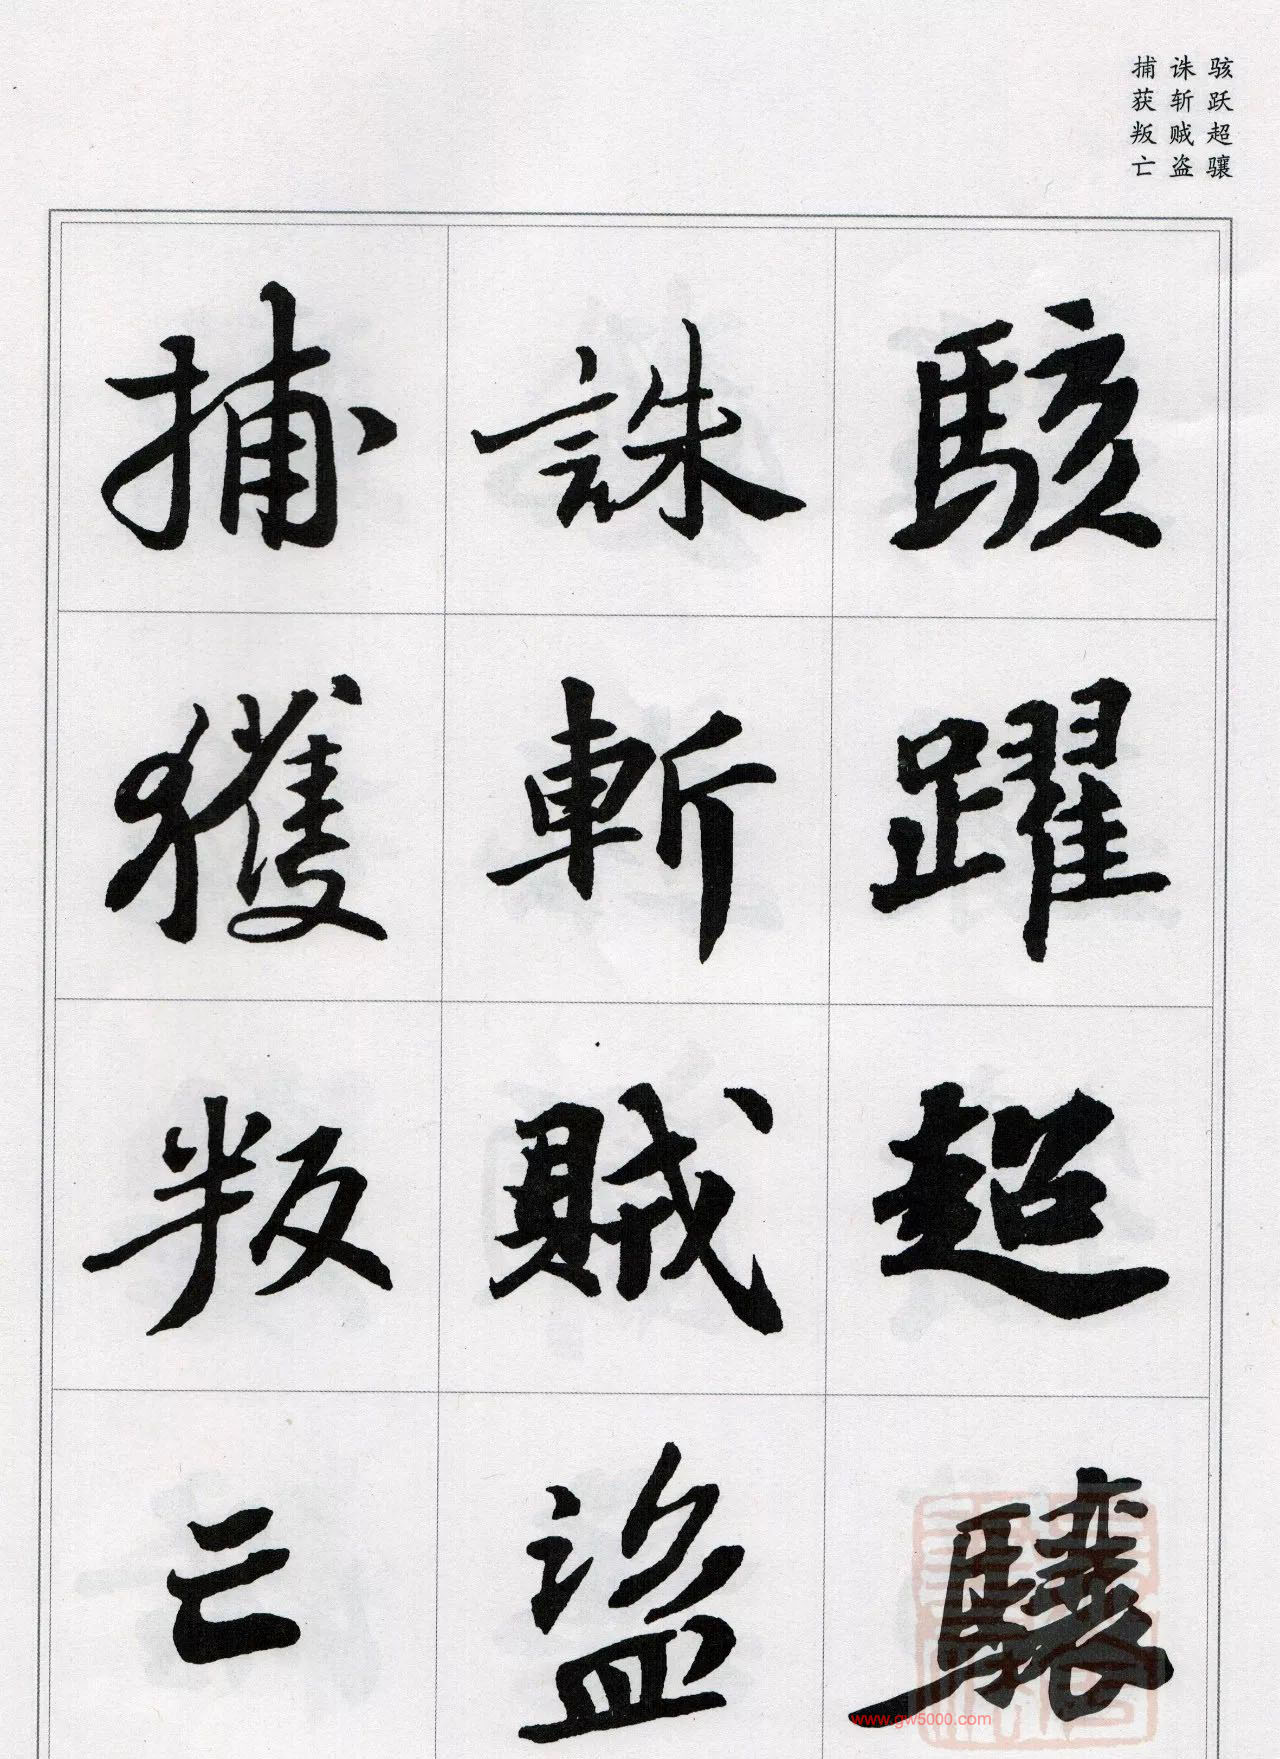 骇跃超骧
诛斩贼盗
捕获叛亡
駭躍超驤
誅斬賊盜
捕獲叛亡
www.gw5000.com